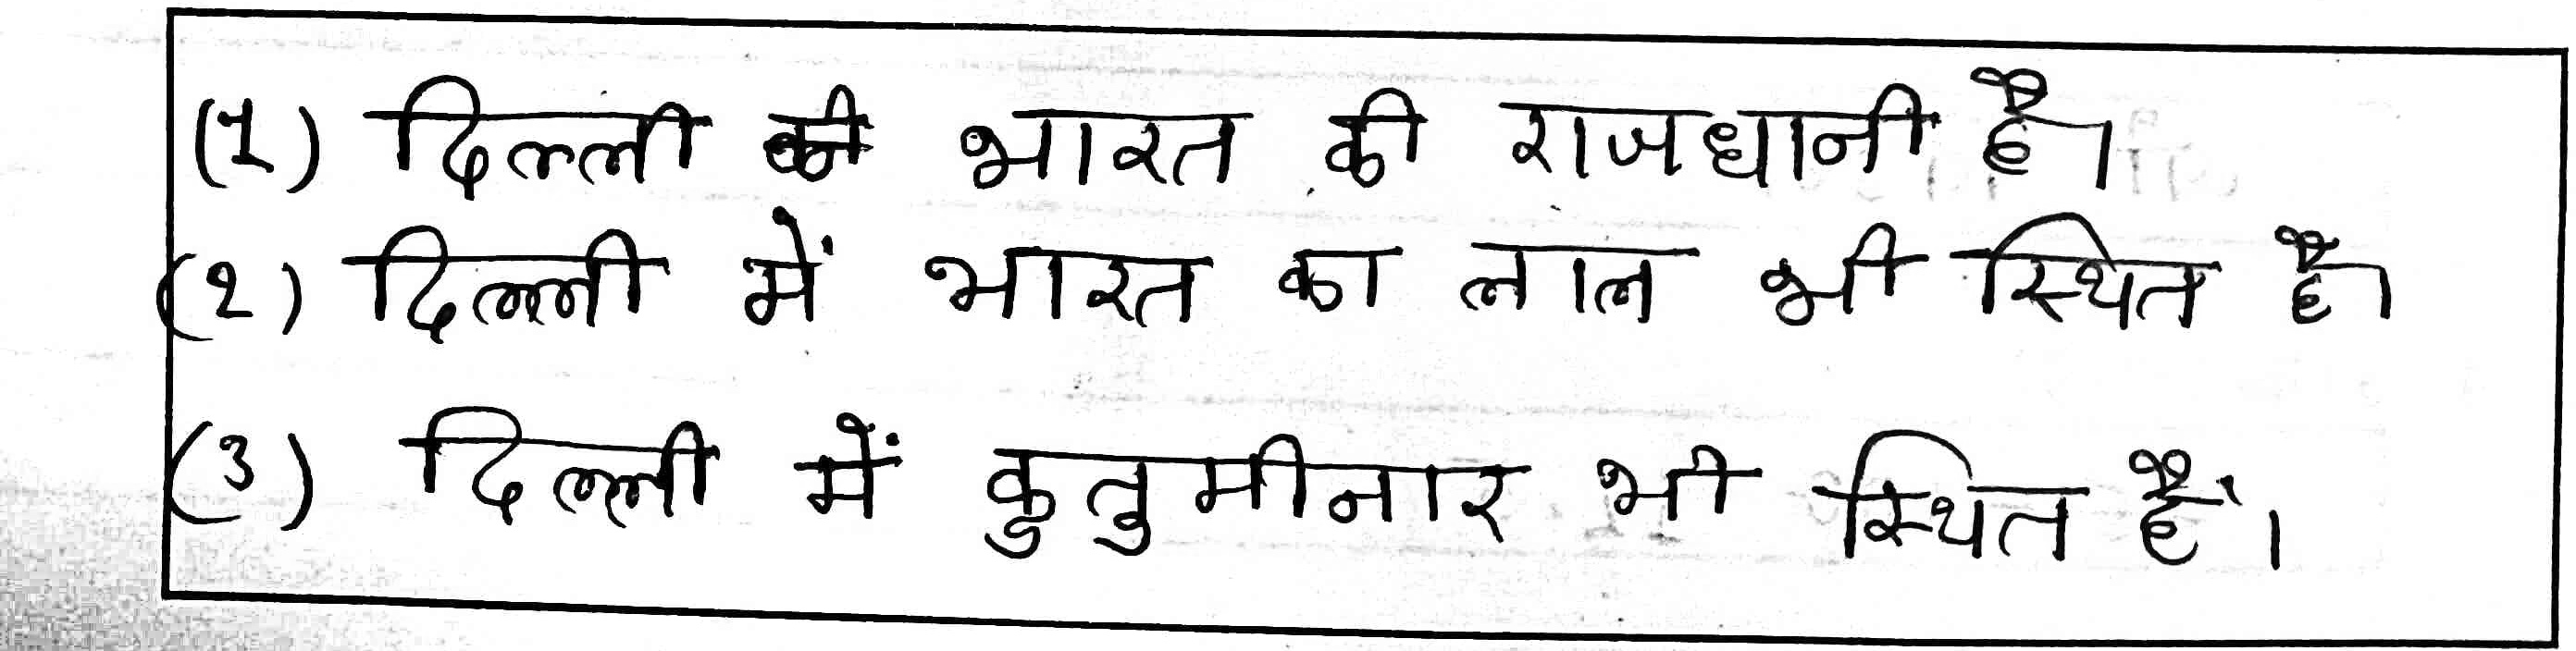 (1) दिल्ली की भारत की राजधानी है।
(2) दिल्ली में भारत का लाल भी स्थित है।
(3) दिल्ली में कुतुमीनार भी स्थित हैं।